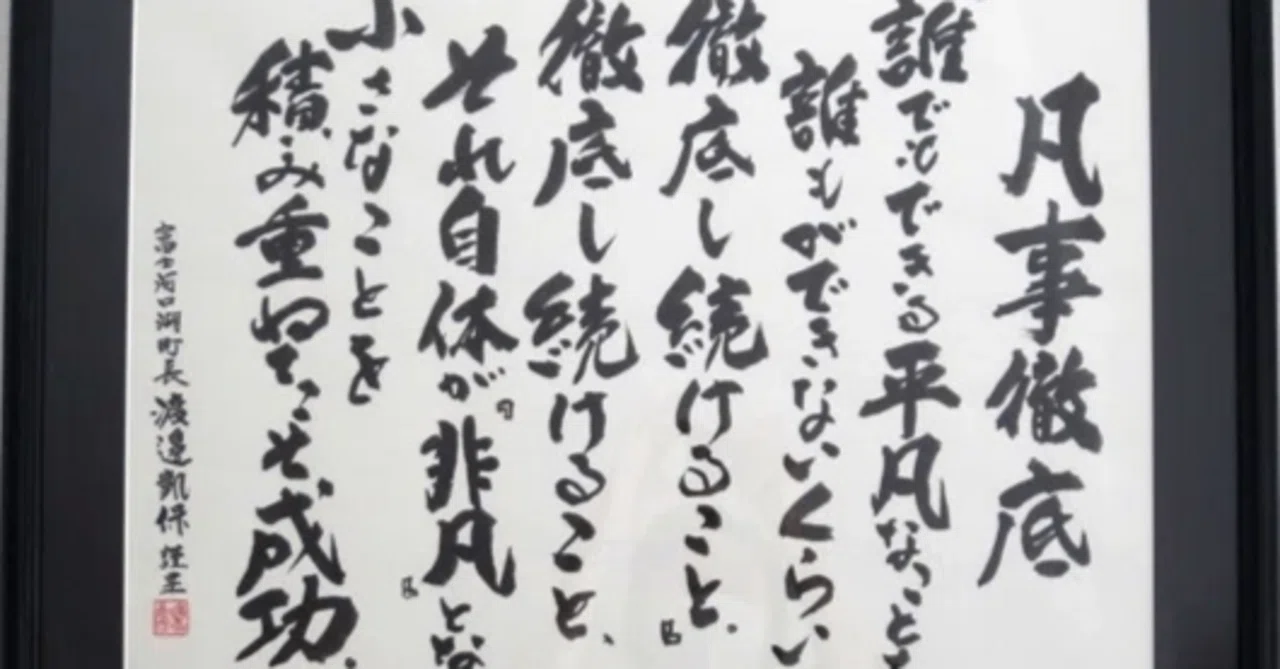 凡事徹底
誰でもできる平凡なことを
誰もができないくらい
徹底し続けること、
徹底し続けること、
それ自体が非凡とな
小さなことを
積み重ねてこそ成功
富士河口湖町長 渡邉凱保 謹呈